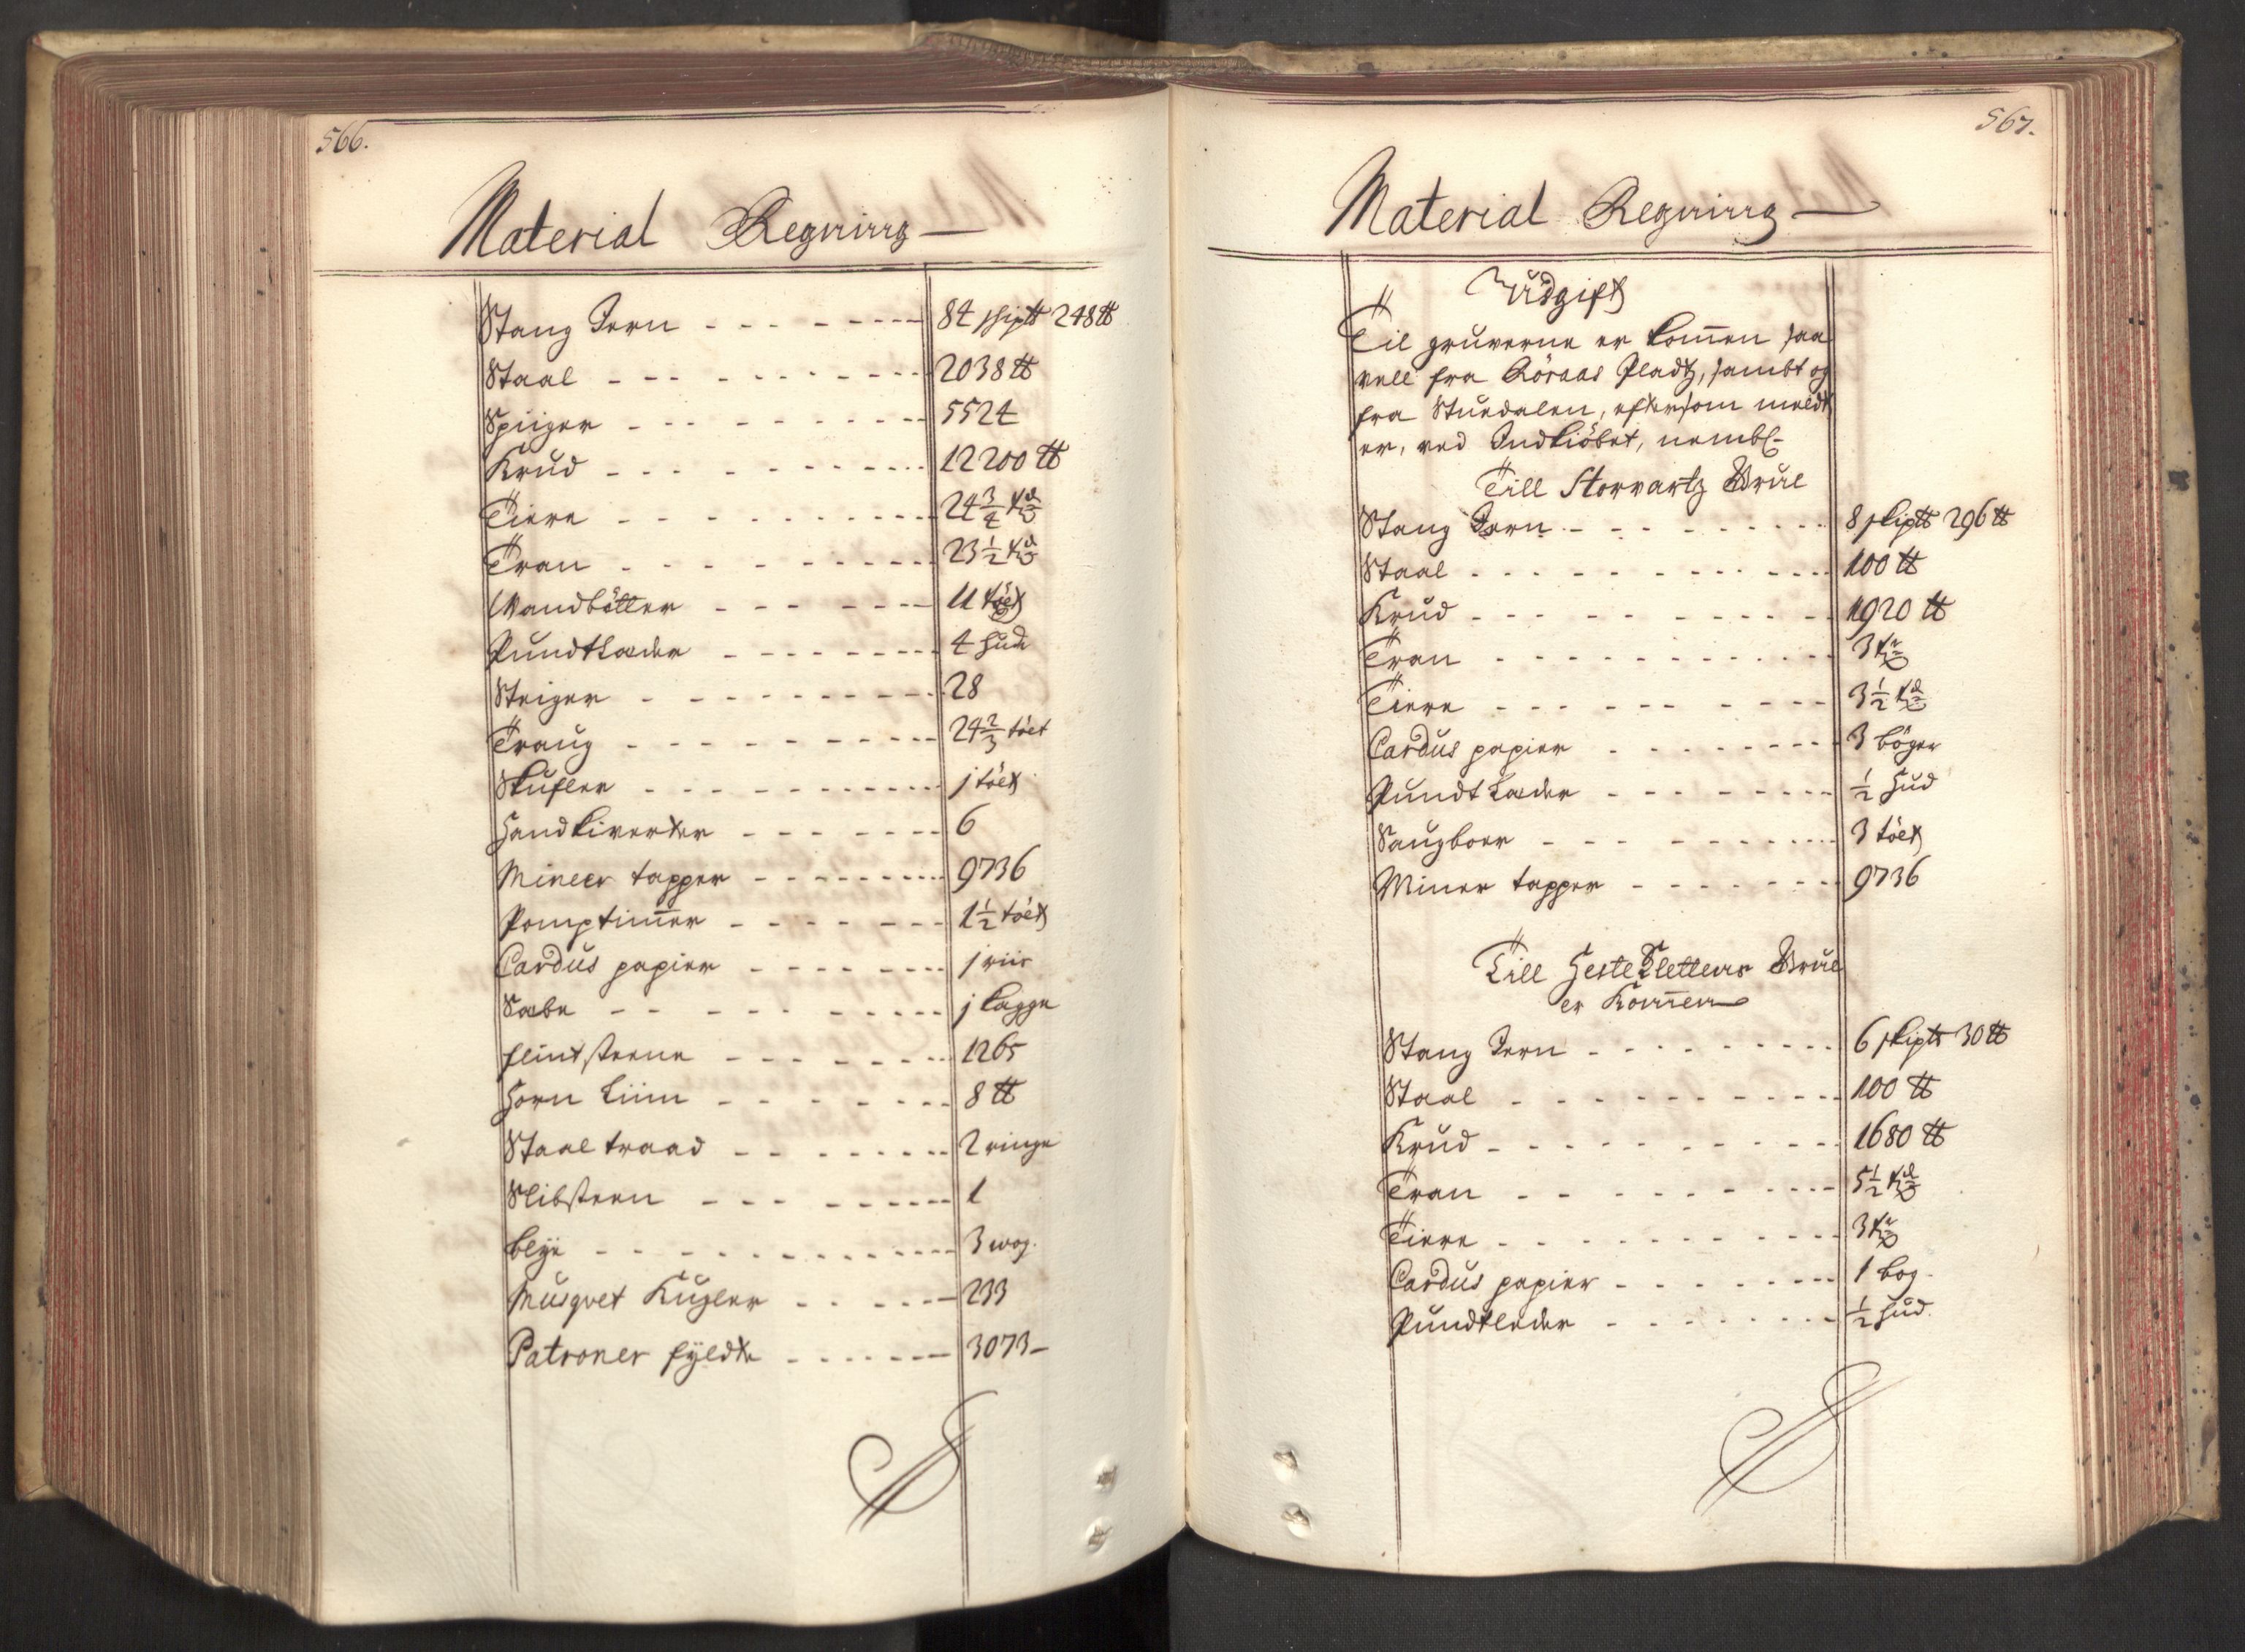 566.
Material Regning
Stang Jern 84 skip℔ 248 ℔
Staal 2038 ℔
Spiiger 5524
Krud 12200 ℔
Tiere 24 3/4 td
Tran 23 1/2 td
Wandbötter 11 tölt
PundtLæder 4 hude
Steiger 28
Traug 24 2/3 tölt
Skufler j tölt
Handkiverter 6
Mineer tapper 9736
Pomptim̅er 1 1/2 tölt
Cardus papier j riis
Sæbe j kagge
flintsteene 1265
Horn Liim 8 ℔
Staal traad 2 ringe
Slibsteen 1
blÿe 3 wog.
Musqvet Kugler 233
Patroner fÿldte 3073
567.
Material Regning
Udgift
Til gruverne er kom̅en saa
vell fra Röraas Pladtz, sambt og
fra Stuedalen, eftersom meldt
er, ved Indkiöbet, nembl.
Till Storvartz Brug
Stang Jern 8 skip℔ 296 ℔
Staal 100 ℔
Krud 1920 ℔
Tran 3 tr
Tiere 3 1/2 td
Cardus papier 3 böger
Pundt Læder 1/2 Hud
Saugboer 3 tölt
Miner tapper 9736
Till Hestekletten Brug
er Kom̅en
Stang Jern 6 skip℔ 30 ℔
Staal 100 ℔
Krud 1680 ℔
Tran 5 1/2 td
Tiere 3 tr
Cardus papier 1 bog
Pundtleder 1/2 hud.